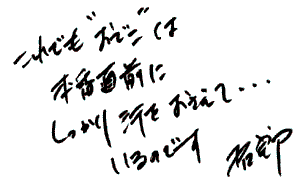 これでも“おでこ”は
本番直前に
しっかり汗をおさえて・・・
いるのです